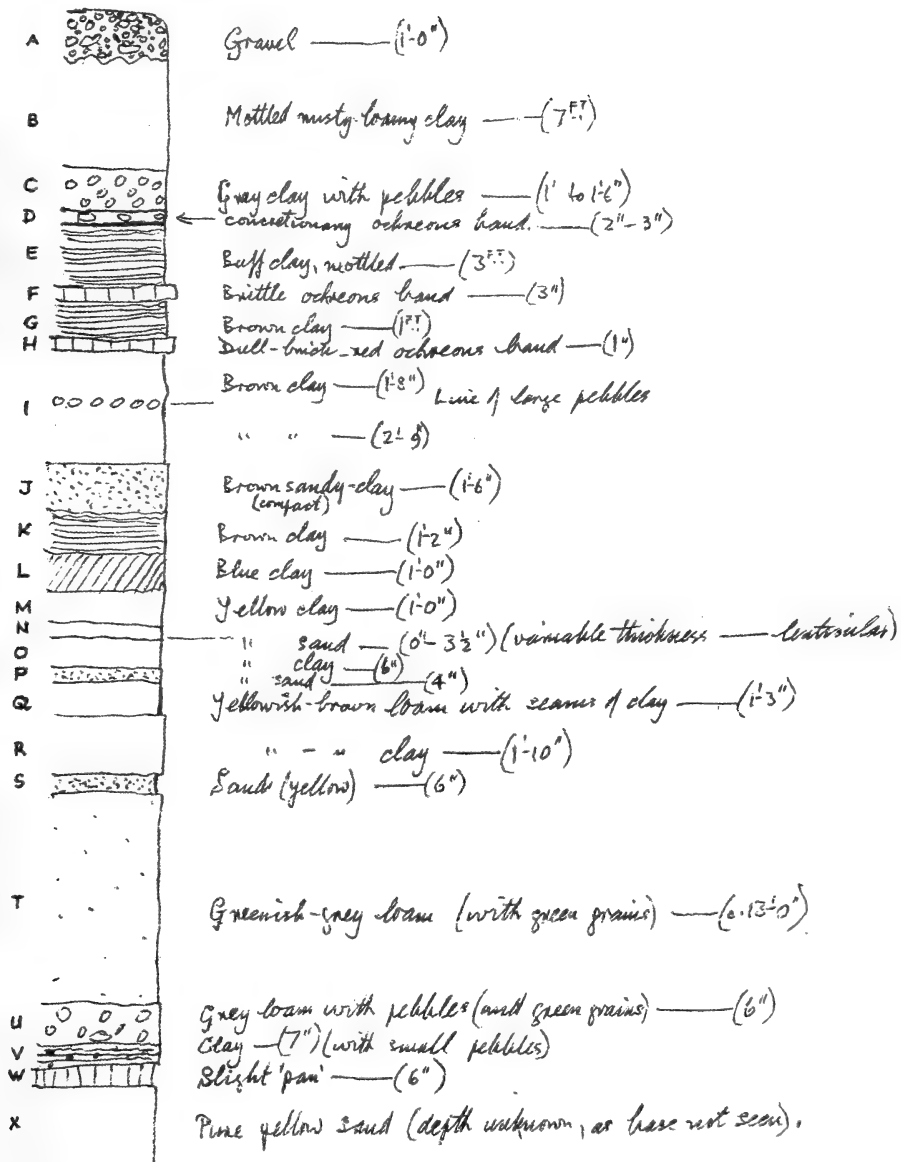 A Gravel — (1'-0")
B Mottled rusty-loamy clay — (7 FT)
C Grey clay with pebbles — (1' to 1'-6")
D concretionary ochreous band. — (2"-3")
E Buff clay, mottled — (3 FT)
F Brittle ochreous band — (3")
G Brown clay — (1 FT)
H Dull-brick-red ochreous band — (1")
Brown clay — (1'-8")
I Line of large pebbles
" " — (2'-9")
J Brown sandy-clay — (1'-6")
(compact)
K Brown clay — (1'-2")
L Blue clay — (1'-0")
M Yellow clay — (1'-0")
N " sand — (0"-3½") (variable thickness — lenticular)
O " clay — (6")
P " sand — (4")
Q Yellowish-brown loam with seams of clay — (1'-3")
R " - " clay — (1'-10")
S Sands (yellow) — (6")
T Greenish-grey loam (with green grains) — (c.13'-0")
U Grey loam with pebbles (and green grains) — (6")
V Clay — (7") (with small pebbles)
W Slight 'pan' — (6")
X Pure yellow sand (depth unknown, as base not seen).